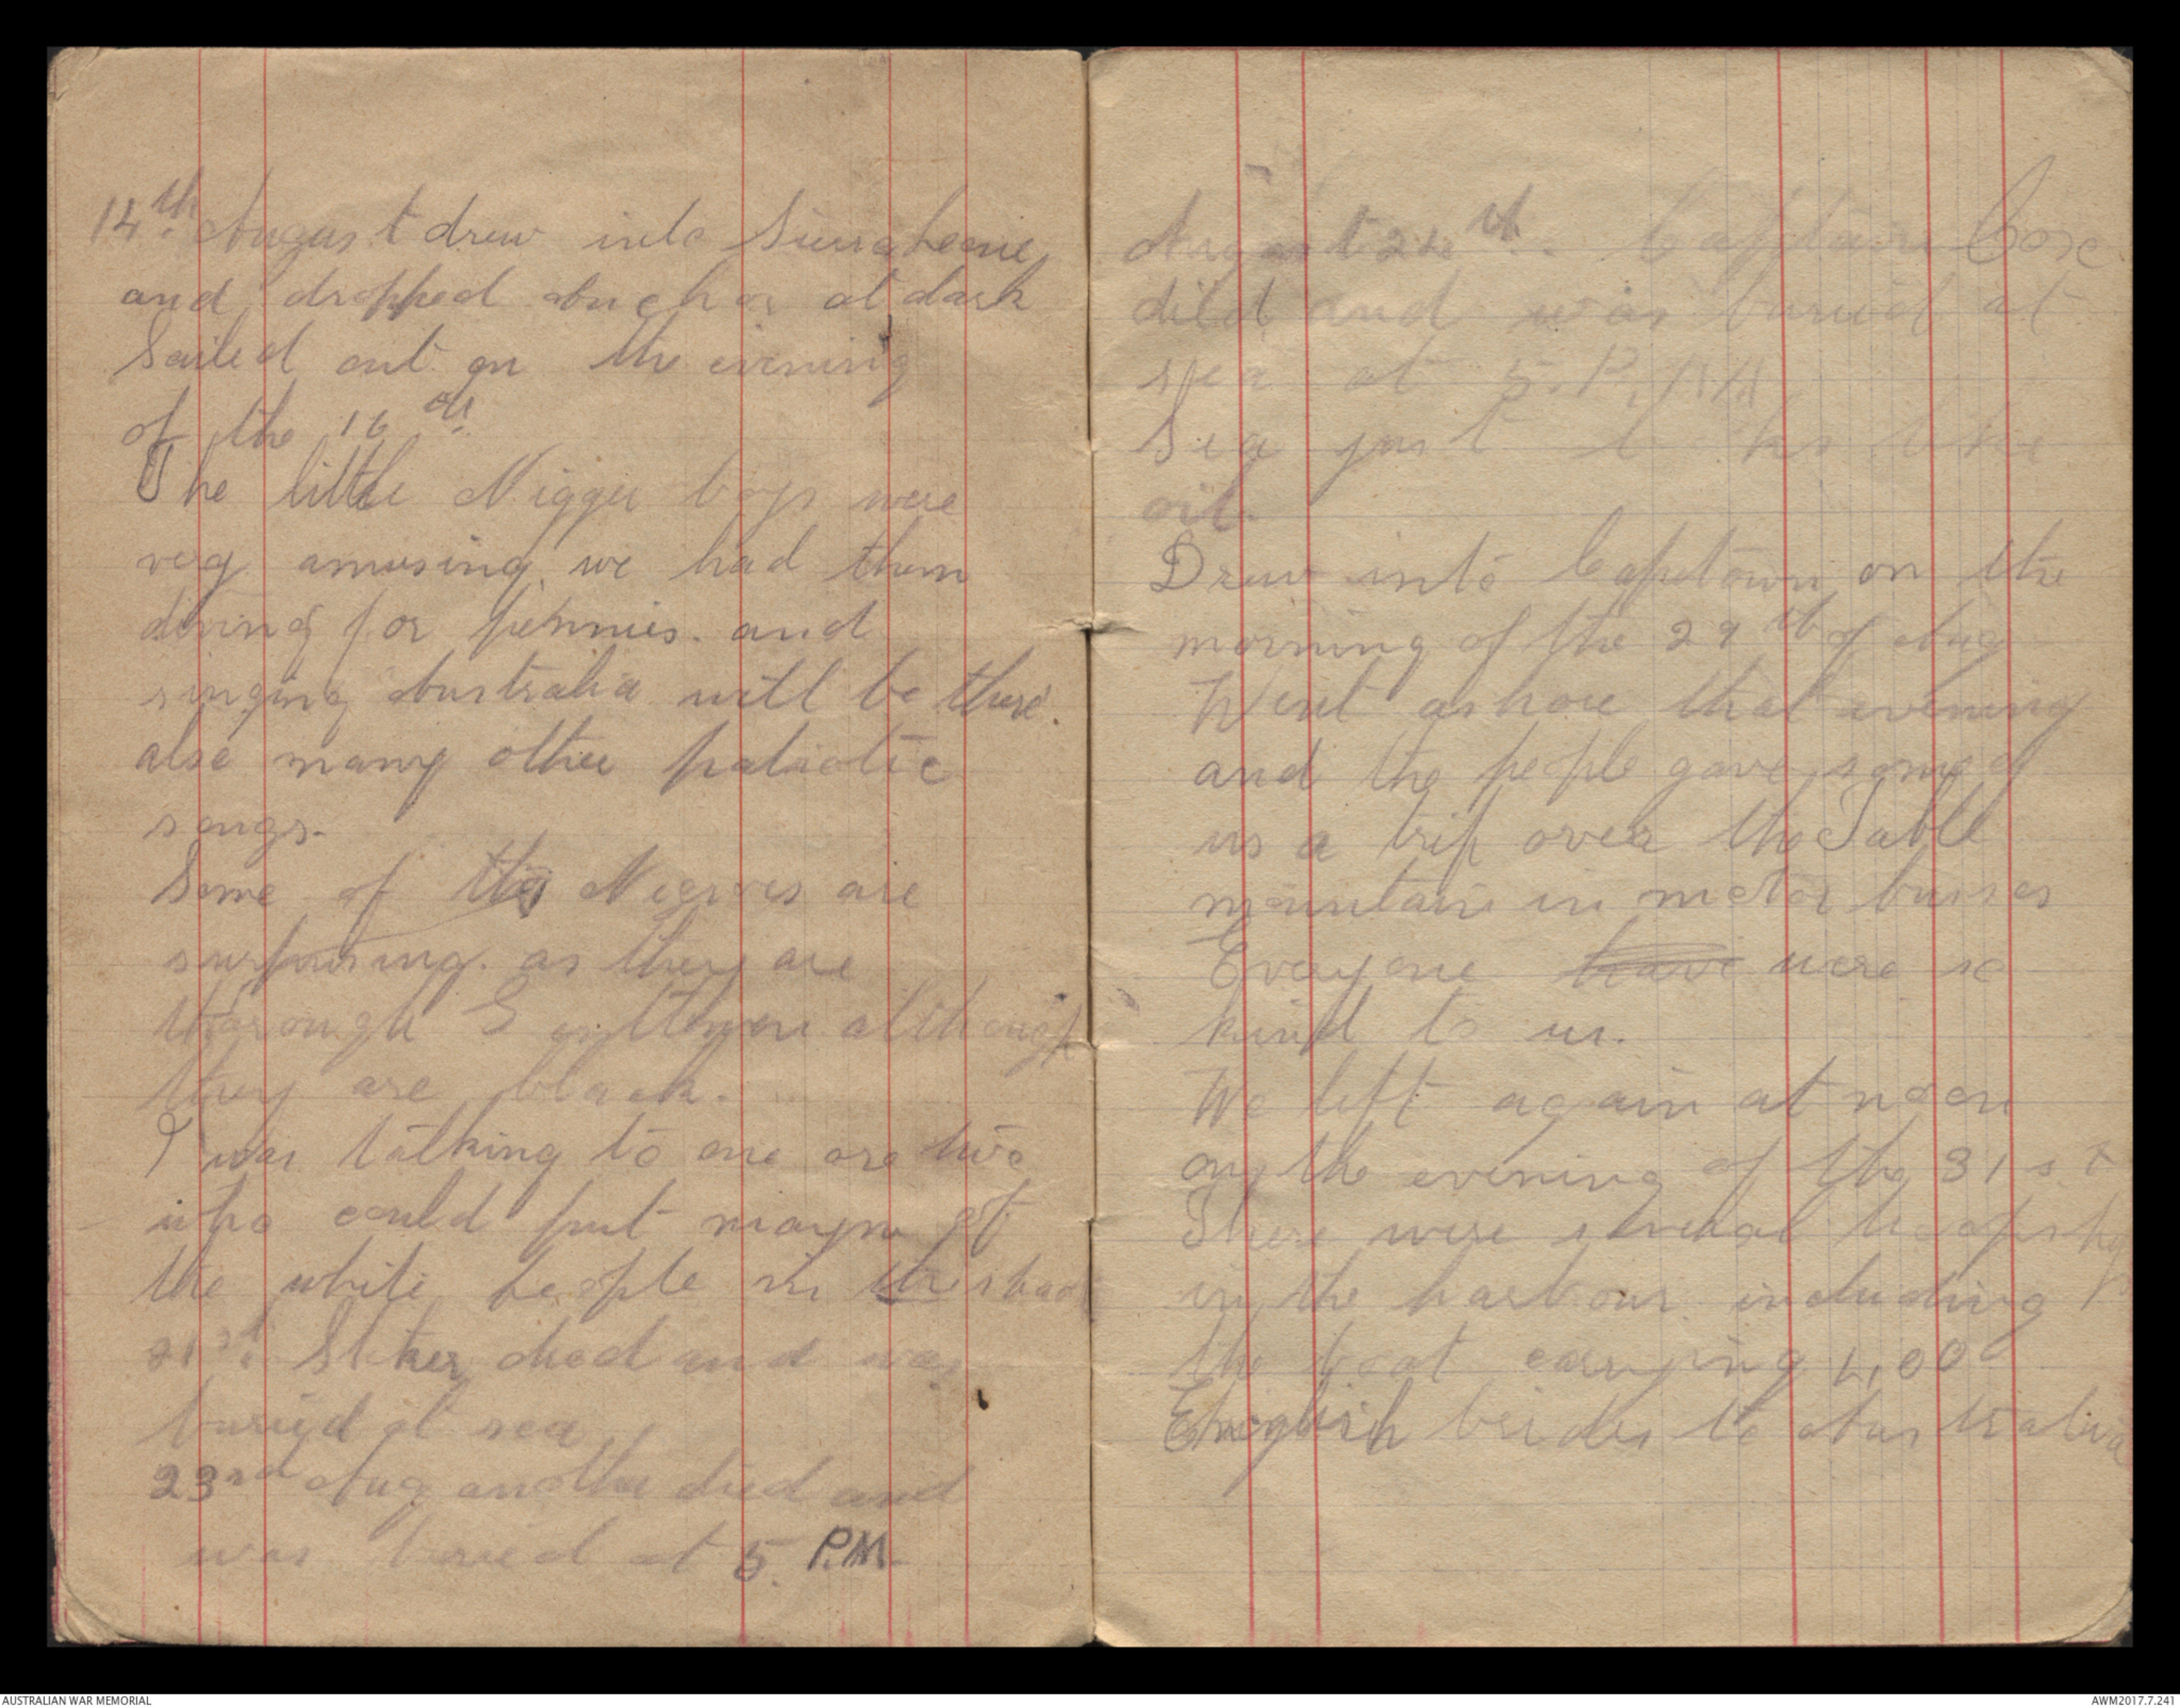 14th August drew into Sierra Leone
and dropped Anchor at dark
Sailed out on the evening
of the 16th.
The little Nigger boys were
very amusing, we had them
diving for pennies. and
singing Australia will be there.
also many other patriotic
songs.
Some of the Negroes are
surprising. as they are
thorough Gentlemen although
they are black.
I was talking to one ore two
who could put mayn of
the white people in the shade
21st. Stoker died and was
buried at sea
23rd Aug another died and
was buried at 5. P.M.
August 24th. Captain Cox
died and was buried at
sea at 5. P.M.
Sea just looks like
oil.
Drew into Capetown on the
morning of the 29th of Aug
Went ashore that evening
and the people gave some of
us a trip over the Table
mountain in motor busses
Everyone have were so
kind to us.
We left again at noon
on the evening of the 31st
There were several troopships
in the harbour including
the boat carrying 1,000
English brides to Australia
AUSTRALIAN WAR MEMORIAL
AWM2017.7.241